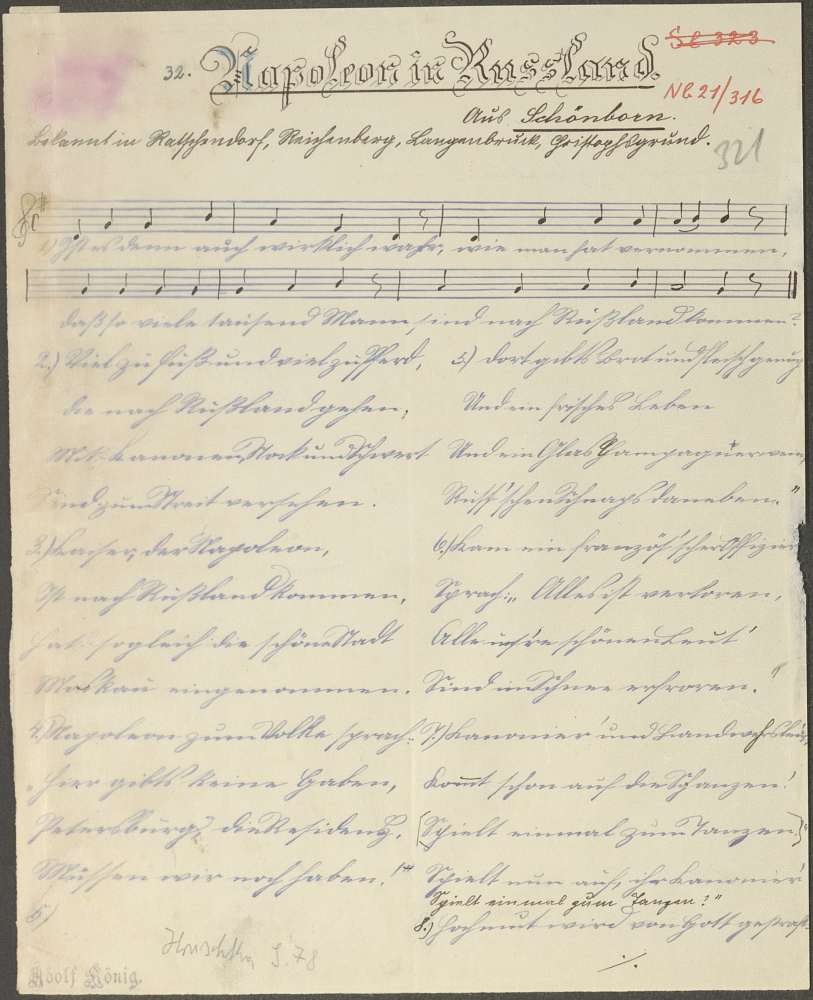 32. Napoleon in Russland.
Sl 323
Nl 21/316
321
Aus Schönborn.
Bekannt in Ratschendorf, Reichenberg, Langenbruck, Christophsgrund.
1.) Ist es denn auch wirklich wahr, wie man hat vernommen,
daß so viele tausend Mann sind nach Rußland kommen?
2.) Viel zu Fuß und viel zu Pferd,
die nach Rußland gehen,
Mit Kanonen, Stock und Schwert
Sind zum Streit versehen.
3.) Kaiser, der Napoleon,
Ist nach Rußland kommen,
Hat sogleich die schöne Stadt
Moskau eingenommen.
4.) Napoleon zum Volke sprach:
„Hier gibts keine Gaben,
Petersburg, die Residenz,
Müssen wir noch haben."
5)
5.) Dort gibts Brot und Fleisch genug
Und ein frisches Leben
Und ein Glas Champagnerwein,
Russ'schen Schnaps daneben."
6.) Kam ein französ'scher Offizier
Sprach: „Alles ist verloren,
Alle uns're schönen Leut'
Sind im Schnee erfroren."
7.) Kanonier' und Landwehrsleut,
Kommt schon auf die Schanzen!
[Spielt einmal zum Tanzen]
Spielt nun auf, ihr Kanonier'
Spielt einmal zum Tanzen!"
8.) Hochmut wird von Gott gestraft
./.
Hruschka S. 78
Adolf König.